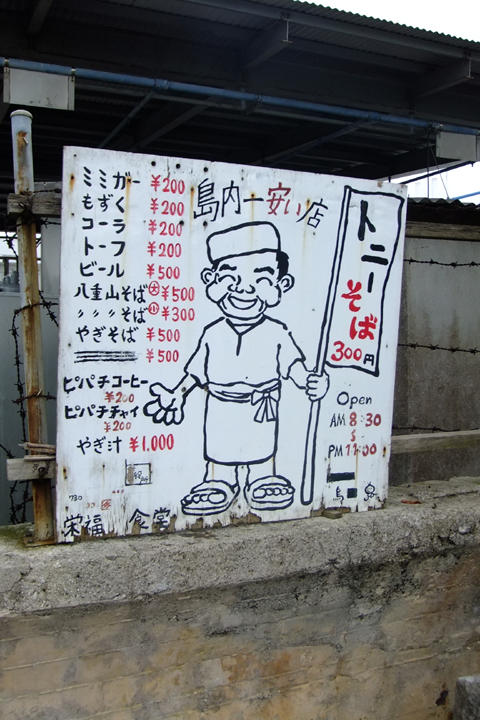 島内一安い店
ミミガー ¥200
もずく ¥200
コーラ ¥200
トーフ ¥200
ビール ¥500
八重山そば 大 ¥500
〃〃〃そば 小 ¥300
やぎそば ¥500
¥500
ピパチコーヒー
¥200
ピパチチャイ
¥200
やぎ汁 ¥1.000
トニー
そば
300円
Open
AM 8:30
PM 11:00
730
栄福 食堂